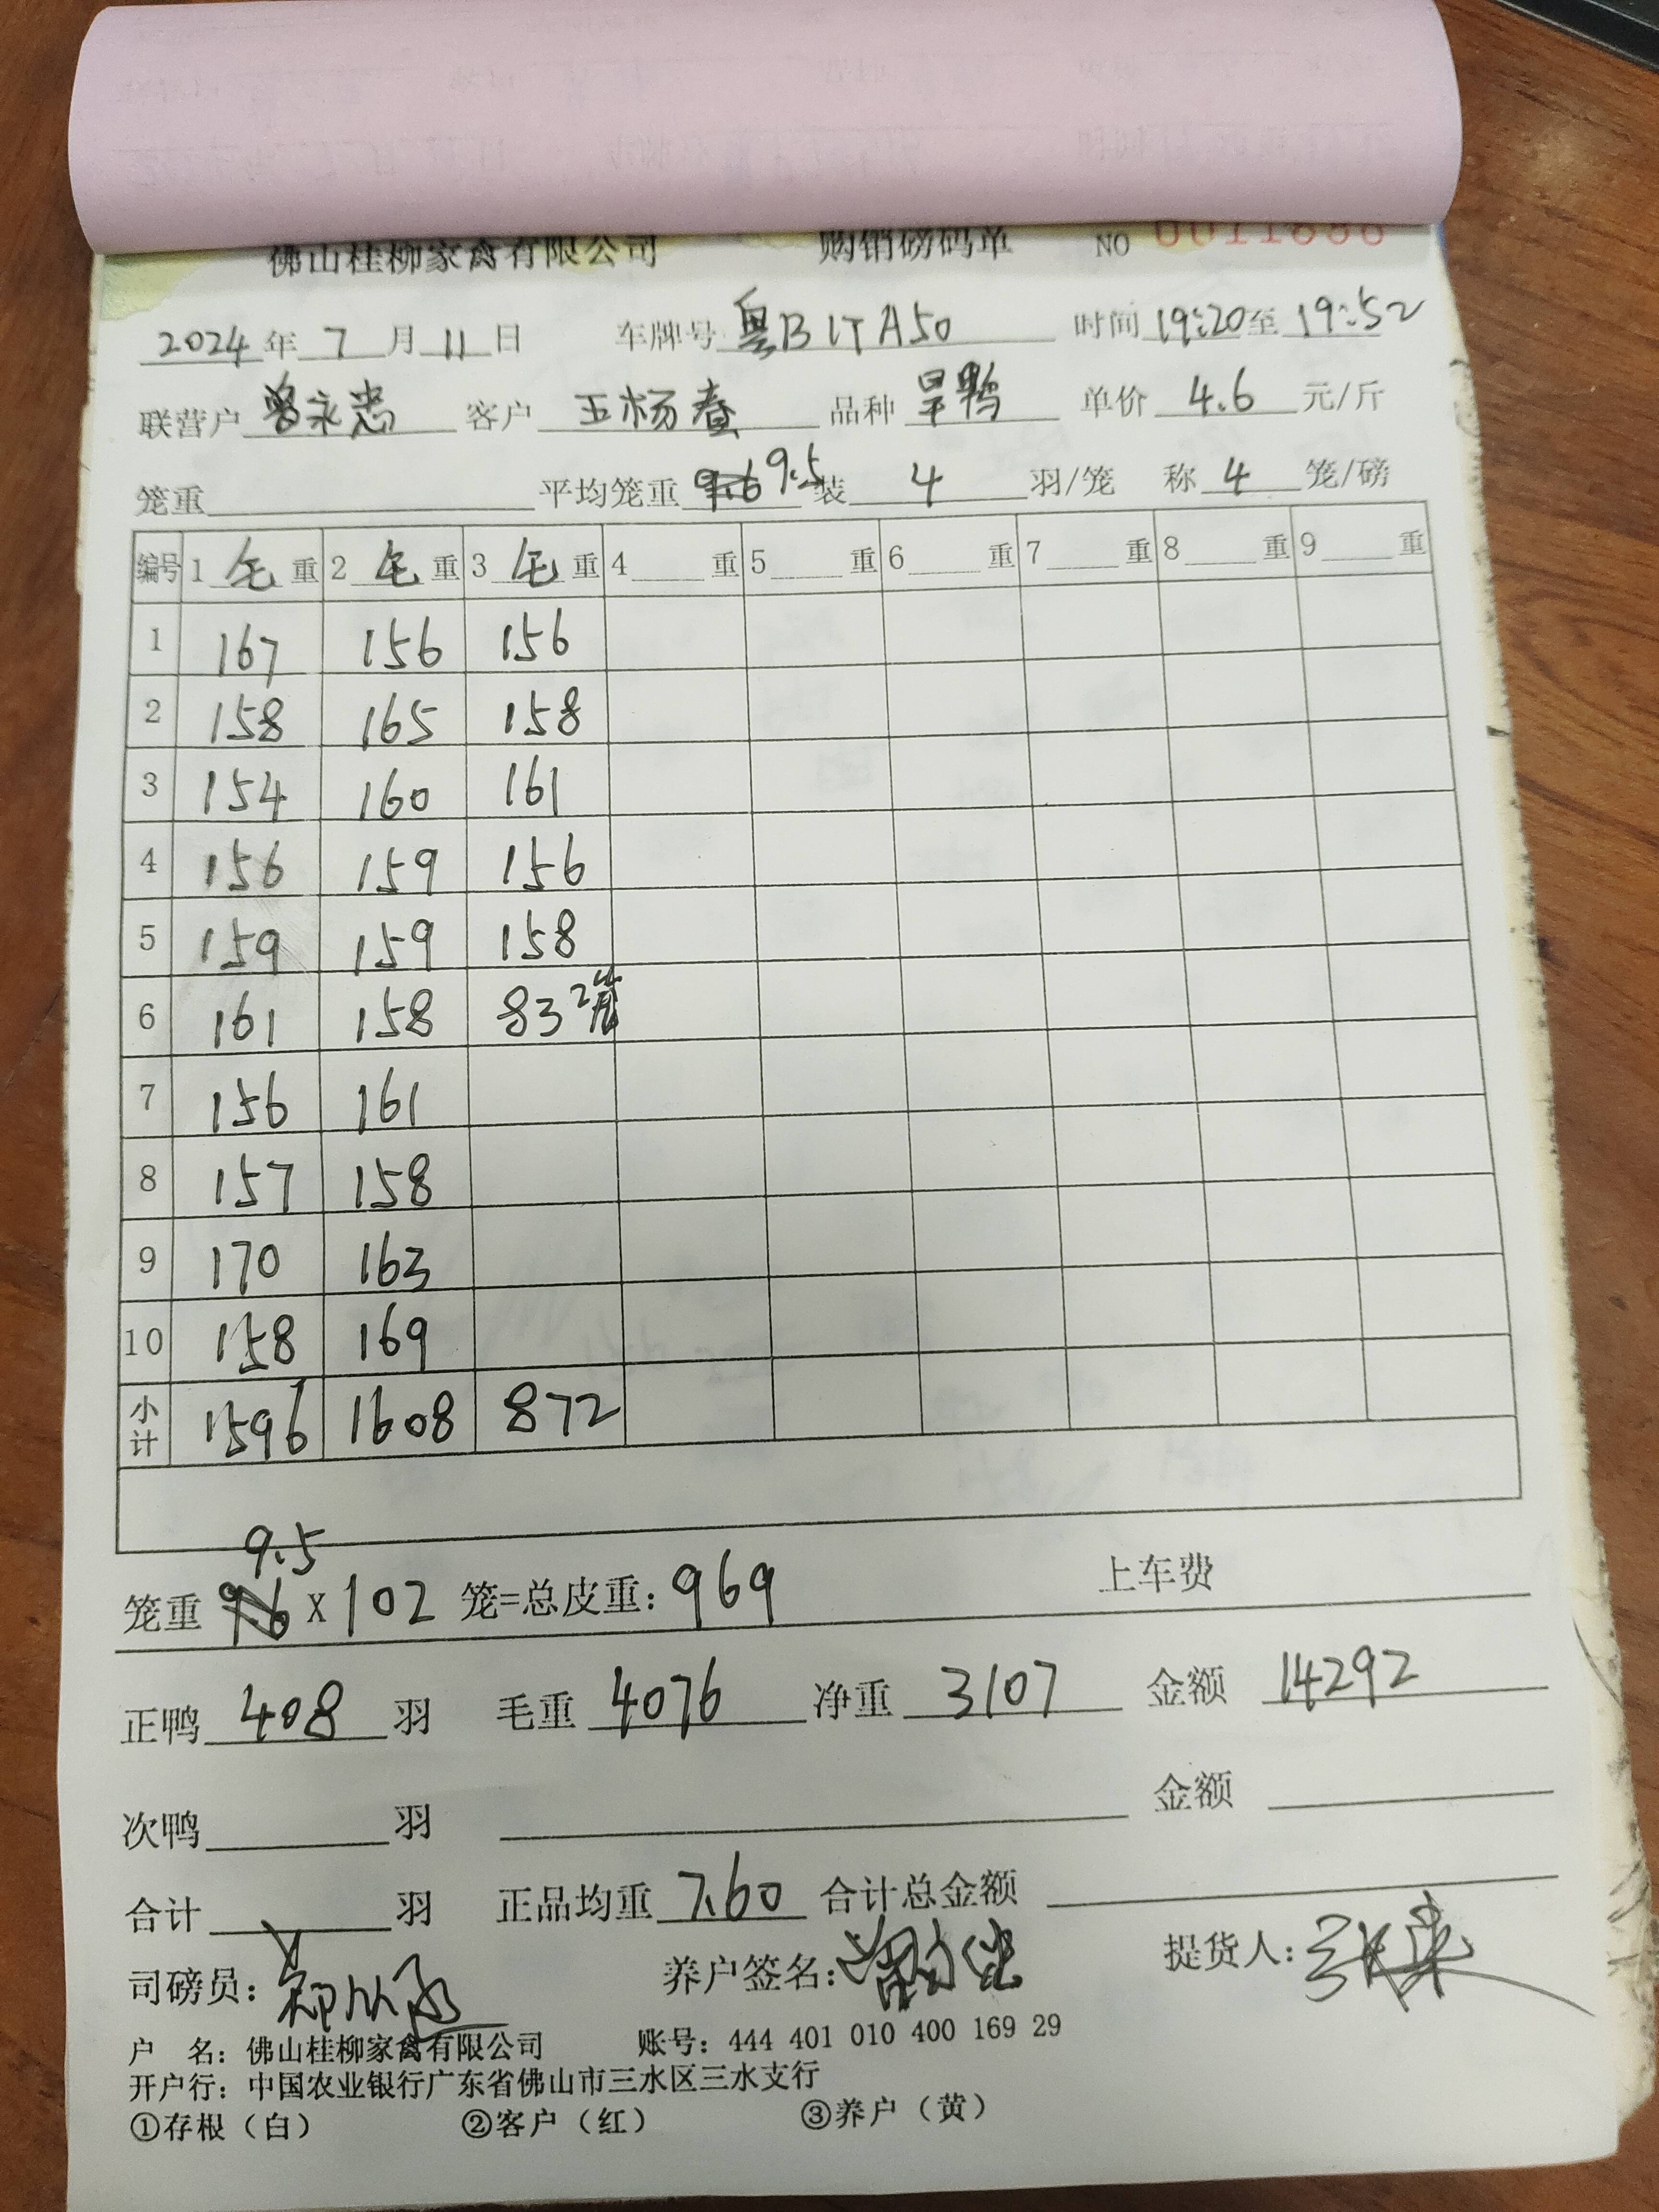 佛山桂柳家禽有限公司 购销磅码单 NO 0011686
2024年 7 月 11 日 车牌号 粤B1TA50 时间 19:20至19:52
联营户 曾永忠 客户 王杨春 品种 旱鸭 单价 4.6 元/斤
笼重 平均笼重 9.5 装 4 羽/笼 称 4 笼/磅
编号 1 毛 重 2 毛 重 3 毛 重 4 重 5 重 6 重 7 重 8 重 9 重
1 167 156 156
2 158 165 158
3 154 160 161
4 156 159 156
5 159 159 158
6 161 158 83 2笼
7 156 161
8 157 158
9 170 163
10 158 169
小计 1596 1608 872
9.5
笼重 9.6 x 102 笼=总皮重: 969 上车费
正鸭 408 羽 毛重 4076 净重 3107 金额 14292
次鸭 羽 金额
合计 羽 正品均重 7.60 合计总金额
司磅员: 养户签名: 提货人:
户 名: 佛山桂柳家禽有限公司 账号: 444 401 010 400 169 29
开户行: 中国农业银行广东省佛山市三水区三水支行
①存根（白） ②客户（红） ③养户（黄）